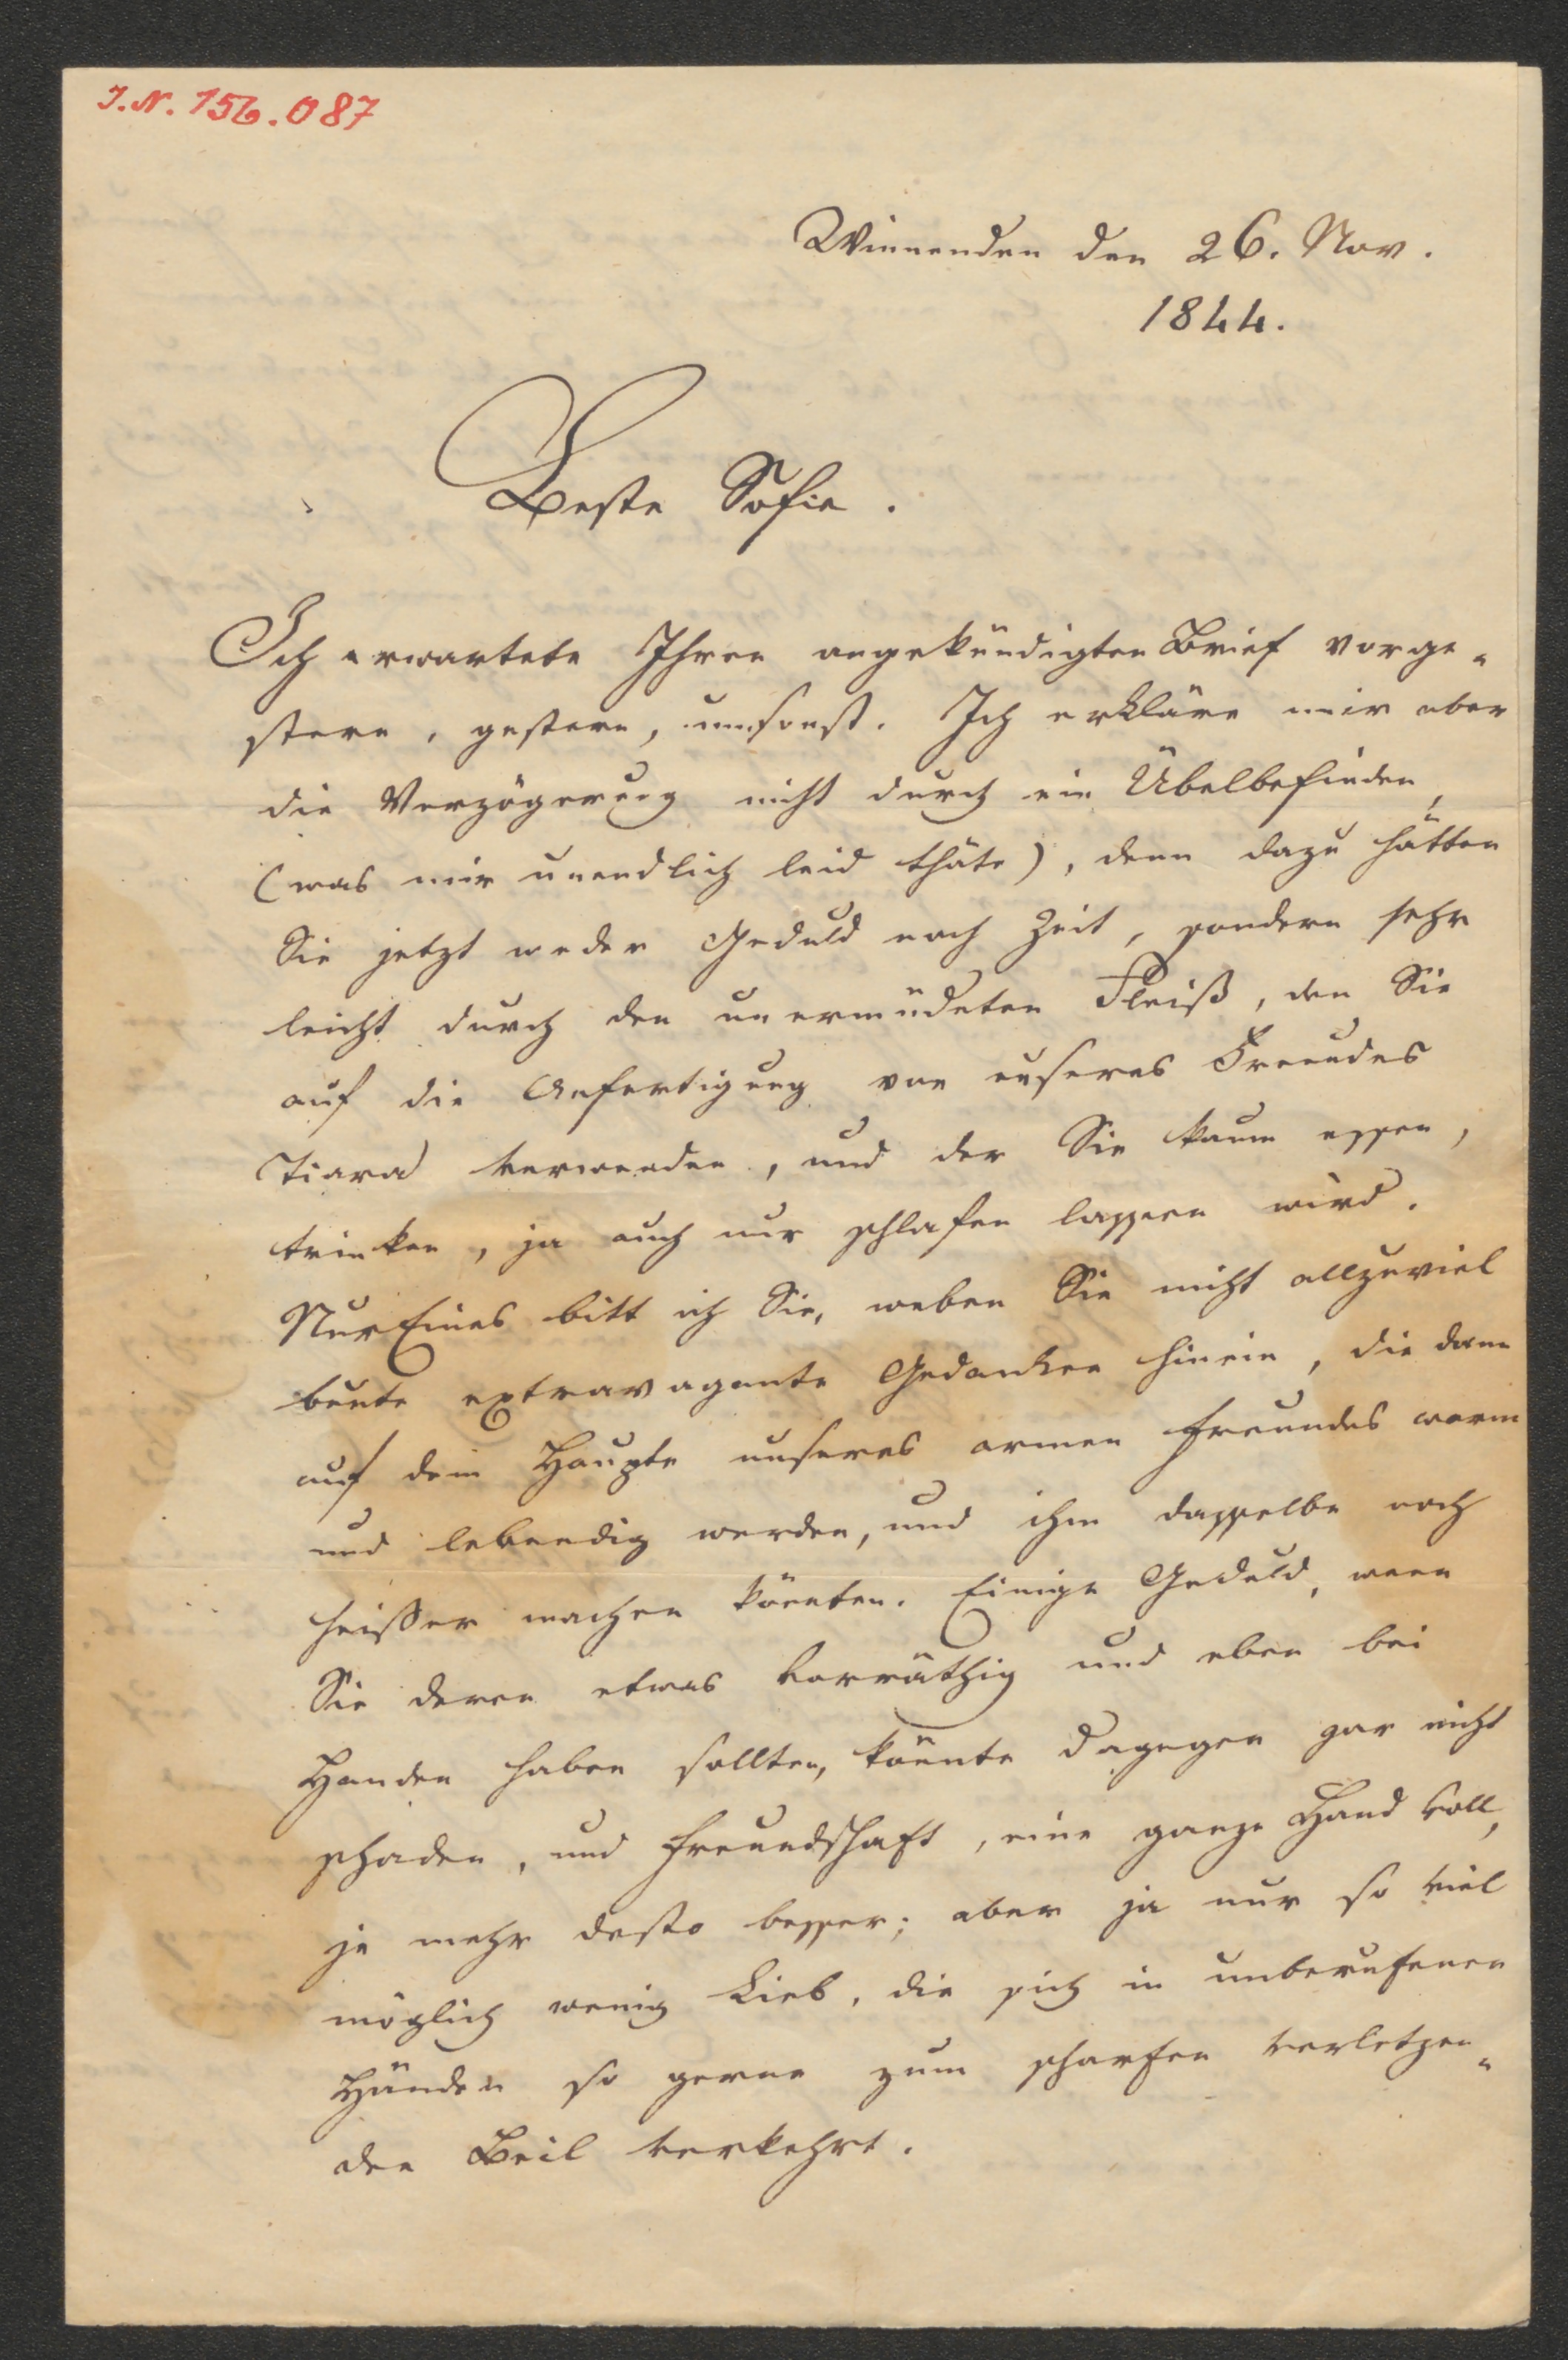 J.N. 156.087
Winnenden den 26. Nov.
1844.
Beste Sofie.
Ich erwartete Ihren angekündigten Brief vorge-
stern, gestern, umsonst. Ich erkläre mir aber
die Verzögerung nicht durch ein Übelbefinden,
(was mir unendlich leid thäte), denn dazu hätten
Sie jetzt weder Geduld noch Zeit, sondern sehr
leicht durch den unermüdeten Fleiß, den Sie
auf die Anfertigung von unseres Freundes
Tiara verwenden, und der Sie kaum essen,
trinken, ja auch nur schlafen lassen wird.
Nur Eines bitt ich Sie, weben Sie nicht allzuviel
bunte extravagante Gedanken hinein, die dann
auf dem Haupte unseres armen Freundes warm
und lebendig werden, und ihm dasselbe noch
heißer machen könnten. Einige Geduld, wenn
Sie deren etwas vorräthig und eben bei
Handen haben sollten, könnte dagegen gar nicht
schaden, und Freundschaft, eine ganze Hand voll,
je mehr desto besser; aber ja nur so viel
möglich wenig Lieb, die sich in unberufenen
Händen so gerne zum scharfen verletzen-
den Beil verkehrt.